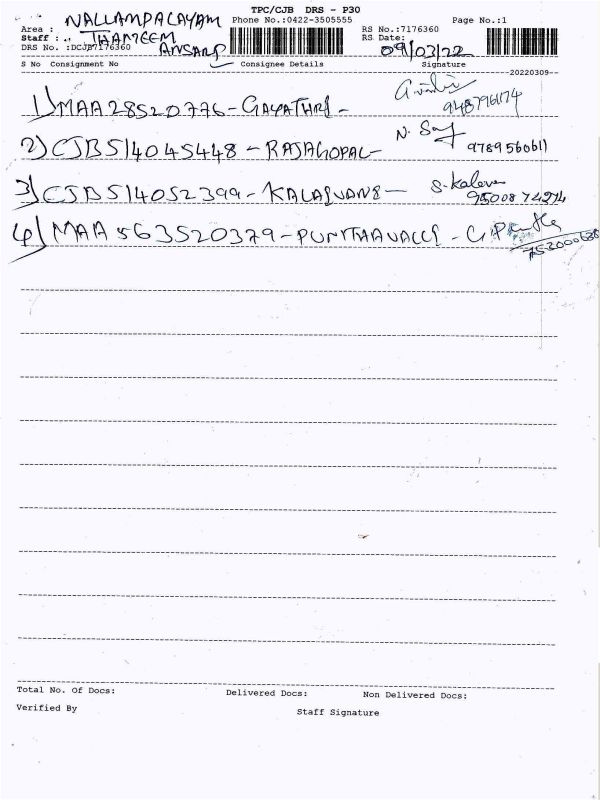 TPC/CJB DRS - P30
NALLAMPALAYAM
Phone No.:0422-3505555
Page No.:1
Area :
RS No.:7176360
Staff : THAMEEM
RS Date: 09/03/22
DRS No. :DCJB7176360 ANSARI
S No Consignment No Consignee Details Signature
20220309
1) MAA28520776 - GAYATHRI -
9487961174
2) CJB514045448 - RAJAGOPAL - N. 9789560611
3) CJB514052399 - KALAIVANI - S. Kalai
9500874274
4) MAA563520379 - PUNITHAVALLI - G.
Total No. Of Docs: Delivered Docs: Non Delivered Docs:
Verified By Staff Signature